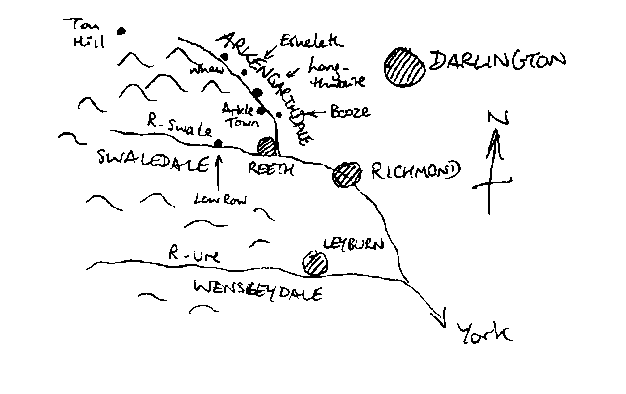 Tan
Hill
ARKENGARTHDALE
Eskeleth
Whaw
Lang-
thwaite
DARLINGTON
Arkle
Town
Booze
N
R-Swale
SWALEDALE
REETH
RICHMOND
Low Row
LEYBURN
R-Ure
WENSLEYDALE
York